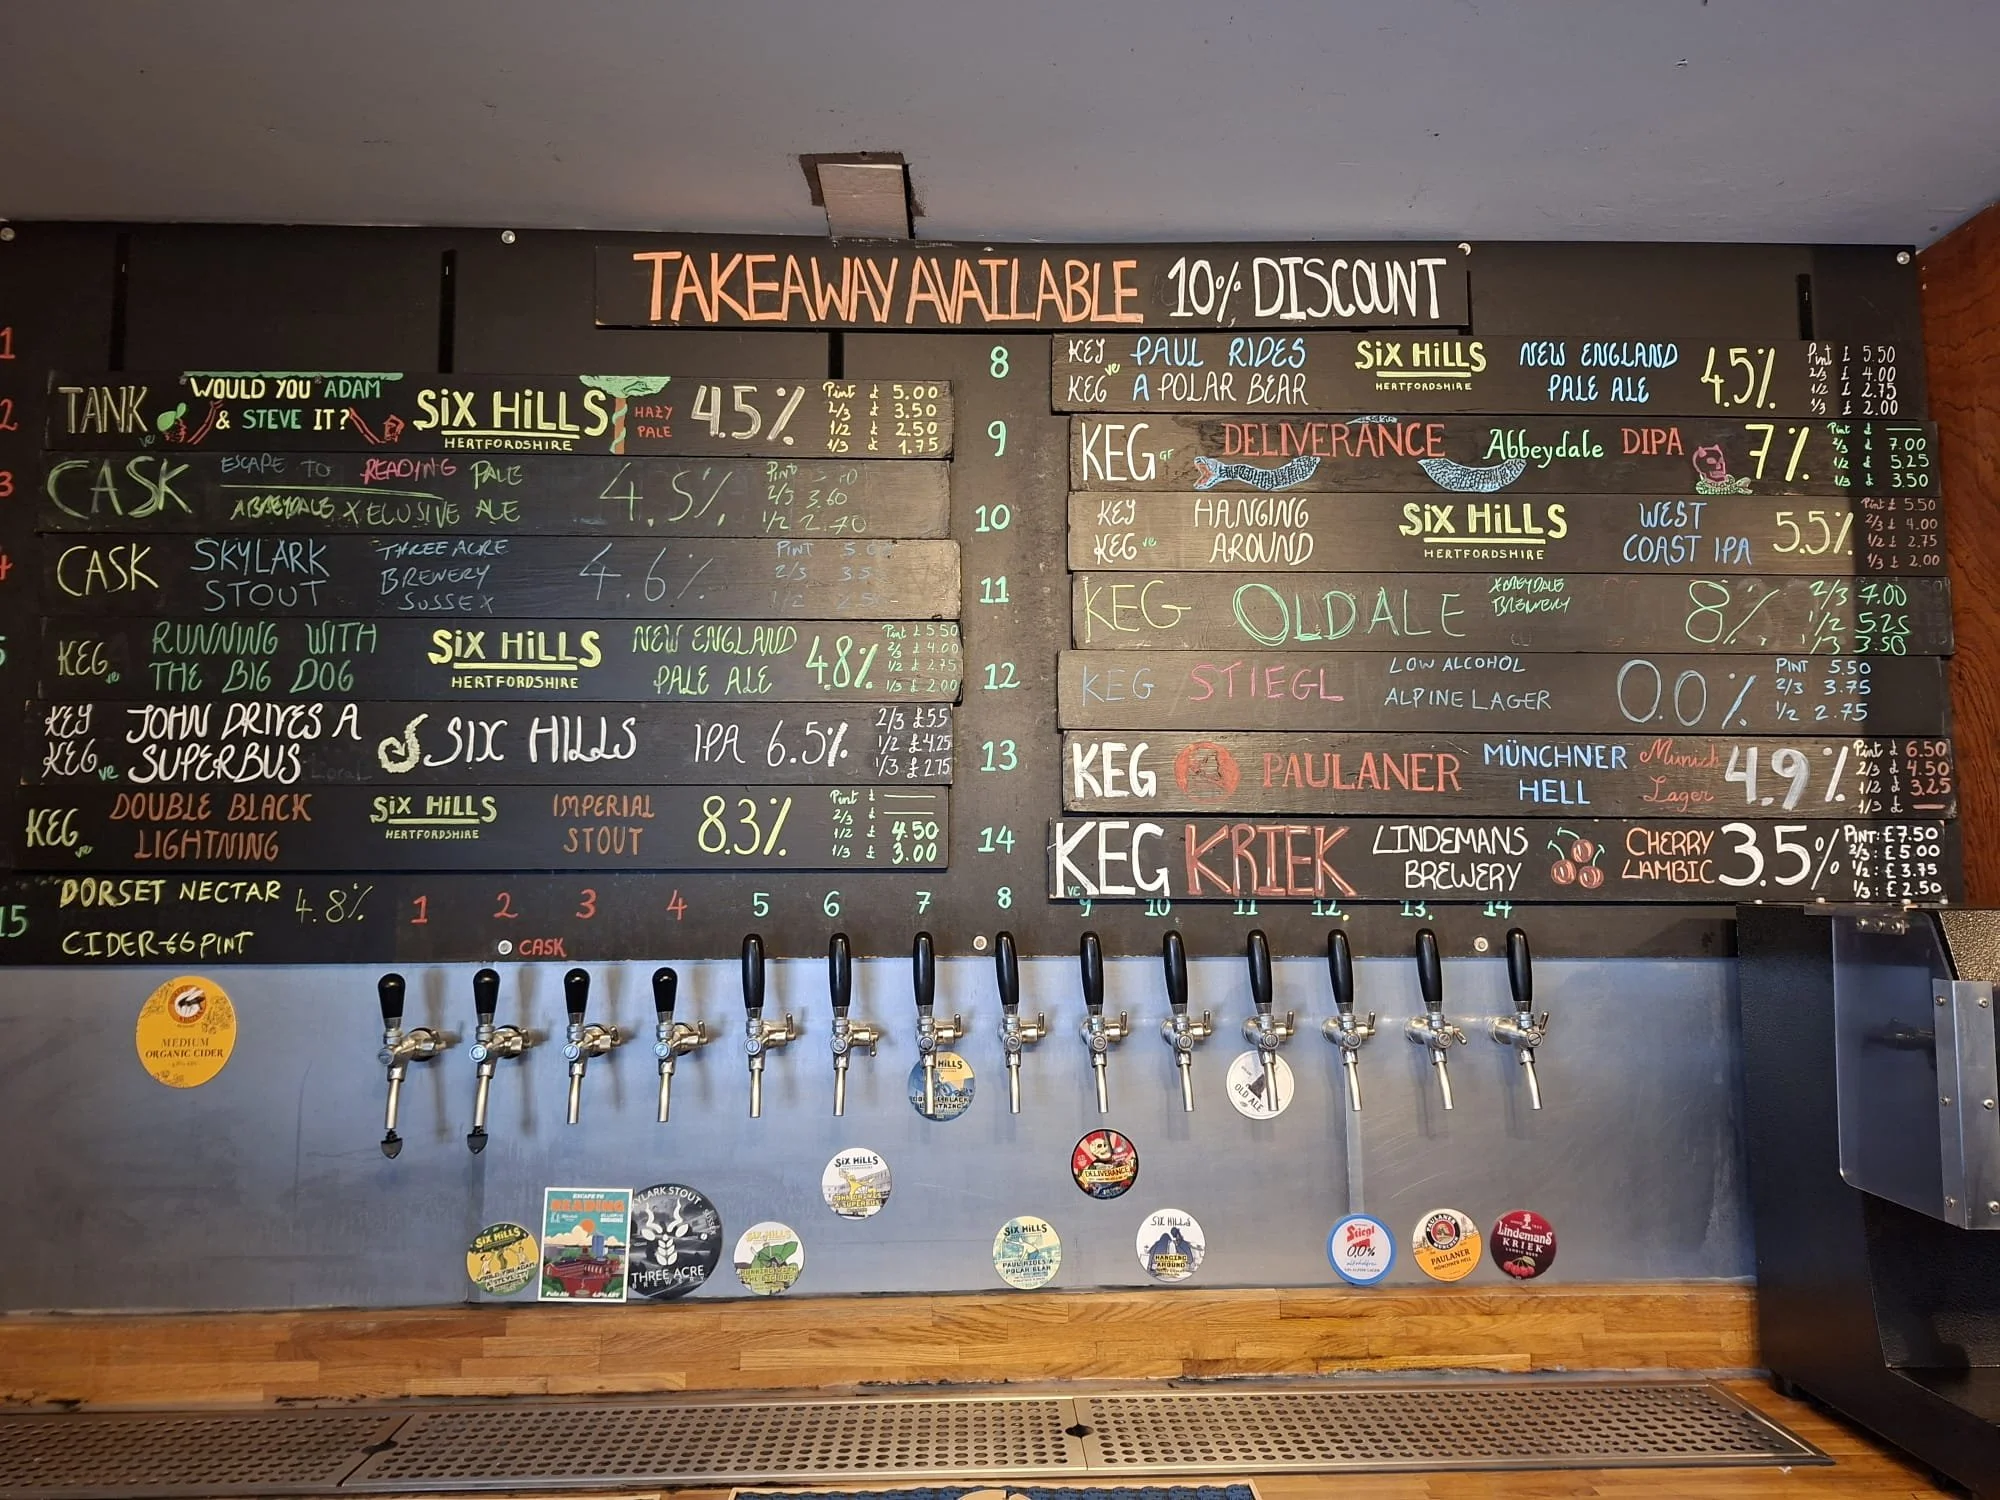 TAKEAWAY AVAILABLE 10% DISCOUNT
1
2
TANK ve WOULD YOU ADAM & STEVE IT? SIX HILLS HERTFORDSHIRE HAZY PALE 4.5%
Pint £ 5.00
2/3 £ 3.50
1/2 £ 2.50
1/3 £ 1.75
3
CASK ESCAPE TO READING PALE 4.5%
ABBEYDALE XCLUSIVE ALE
Pint
2/3 3.60
1/2 2.70
4
CASK SKYLARK STOUT THREE ACRE BREWERY SUSSEX 4.6%
PINT 5.0
2/3 3.5
1/2 2.5
5
KEG ve RUNNING WITH THE BIG DOG SIX HILLS HERTFORDSHIRE NEW ENGLAND PALE ALE 4.8%
Pint £ 5.50
2/3 £ 4.00
1/2 £ 2.75
1/3 £ 2.00
KEY KEG ve JOHN DRIVES A SUPERBUS SIX HILLS IPA 6.5%
2/3 £5.5
1/2 £4.25
1/3 £2.75
KEG ve DOUBLE BLACK LIGHTNING SIX HILLS HERTFORDSHIRE IMPERIAL STOUT 8.3%
Pint £ —
2/3 £ —
1/2 £ 4.50
1/3 £ 3.00
15
DORSET NECTAR 4.8%
CIDER - £6 PINT
8
KEY KEG ve PAUL RIDES A POLAR BEAR SIX HILLS HERTFORDSHIRE NEW ENGLAND PALE ALE 4.5%
Pint £ 5.50
2/3 £ 4.00
1/2 £ 2.75
1/3 £ 2.00
9
KEG GF DELIVERANCE Abbeydale DIPA 7%
Pint £ —
2/3 £ 7.00
1/2 £ 5.25
1/3 £ 3.50
10
KEY KEG ve HANGING AROUND SIX HILLS HERTFORDSHIRE WEST COAST IPA 5.5%
Pint £ 5.50
2/3 £ 4.00
1/2 £ 2.75
1/3 £ 2.00
11
KEG OLD ALE BREWERY 8%
2/3 7.00
1/2 5.25
1/3 3.50
12
KEG STIEGL LOW ALCOHOL ALPINE LAGER 0.0%
PINT 5.50
2/3 3.75
1/2 2.75
13
KEG PAULANER MÜNCHNER HELL Munich Lager 4.9%
Pint £ 6.50
2/3 £ 4.50
1/2 £ 3.25
1/3 £ —
14
KEG VE KRIEK LINDEMANS BREWERY CHERRY LAMBIC 3.5%
PINT: £7.50
2/3: £5.00
1/2: £3.75
1/3: £2.50
1 2 3 4 5 6 7 8 9 10 11 12. 13. 14
CASK
MEDIUM
ORGANIC CIDER
SIX HILLS
WOULD YOU ADAM
ESCAPE TO
READING
Pale Ale
SKYLARK STOUT
THREE ACRE
SIX HILLS
RUNNING WITH
THE BIG DOG
SIX HILLS
JOHN DRIVES
A SUPERBUS
HILLS
SIX HILLS
PAUL RIDES A
POLAR BEAR
DELIVERANCE
SIX HILLS
HANGING
AROUND
OLD ALE
Stiegl
0,0%
PAULANER
PAULANER
MÜNCHNER HELL
Lindemans
KRIEK